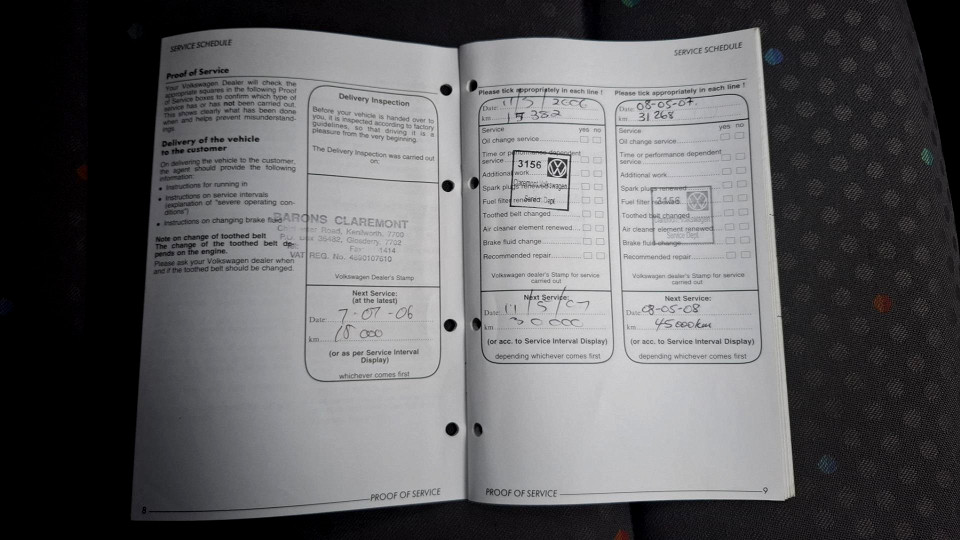 SERVICE SCHEDULE
Proof of Service
Your Volkswagen Dealer will check the
appropriate squares in the following Proof
of Service boxes to confirm which type of
service has or has not been carried out.
This shows clearly what has been done
when and helps prevent misunderstand-
ings
Delivery of the vehicle
to the customer
On delivering the vehicle to the customer,
the agent should provide the following
information:
• Instructions for running in
• Instructions on service intervals
(explanation of "severe operating con-
ditions")
• Instructions on changing brake fluid
Note on change of toothed belt
The change of the toothed belt de-
pends on the engine.
Please ask your Volkswagen dealer when
and if the toothed belt should be changed.
Delivery Inspection
Before your vehicle is handed over to
you, it is inspected according to factory
guidelines, so that driving it is a
pleasure from the very beginning.
The Delivery Inspection was carried out
on:
BARONS CLAREMONT
Road, Kenilworth, 7700
7702
1414
VAT REG. No. 4690107610
Volkswagen dealer's Stamp
Next Service:
(at the latest)
Date: 7-07-06
km 15 000
(or as per Service Interval
Display)
whichever comes first
8
PROOF OF SERVICE
SERVICE SCHEDULE
Please tick appropriately in each line !
Date: 11/5/2006
km 17 332
Service yes no
Oil change service
Time or performance dependent
service
Additional work
Spark plugs renewed
Fuel filter renewed
Toothed belt changed
Air cleaner element renewed
Brake fluid change
Recommended repair
3156
Claremont Volkswagen
Service Dept
Volkswagen dealer's Stamp for service
carried out
Next Service:
Date 11/5/07
km 30 000
(or acc. to Service Interval Display)
depending whichever comes first
Please tick appropriately in each line !
Date 08-05-07.
km 31 268
Service yes no
Oil change service
Time or performance dependent
service
Additional work
Spark plugs renewed
Fuel filter renewed
Toothed belt changed
Air cleaner element renewed
Brake fluid change
Recommended repair
3156
Volkswagen
Service Dept
Volkswagen dealer's Stamp for service
carried out
Next Service:
Date 08-05-08
km 45 000km
(or acc. to Service Interval Display)
depending whichever comes first
PROOF OF SERVICE
9